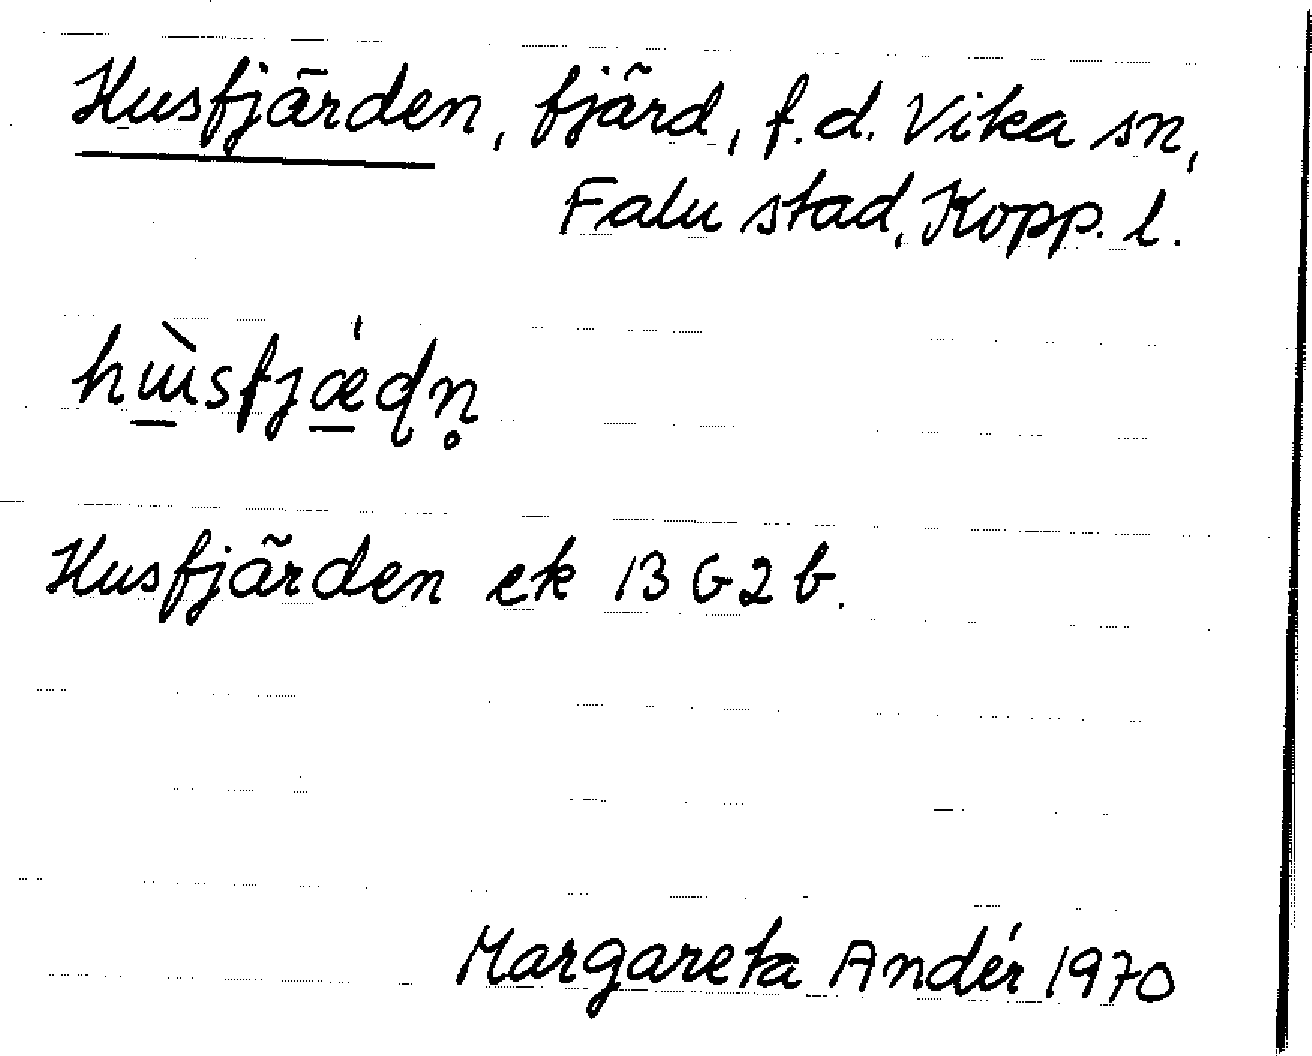 Husfjärden, fjärd, f.d. Vika sn,
Falu stad, Kopp. l.
hɯ̠̀sfjǽ̠ɖn̥
Husfjärden ek 13 G 2 b.
Margareta Andér 1970